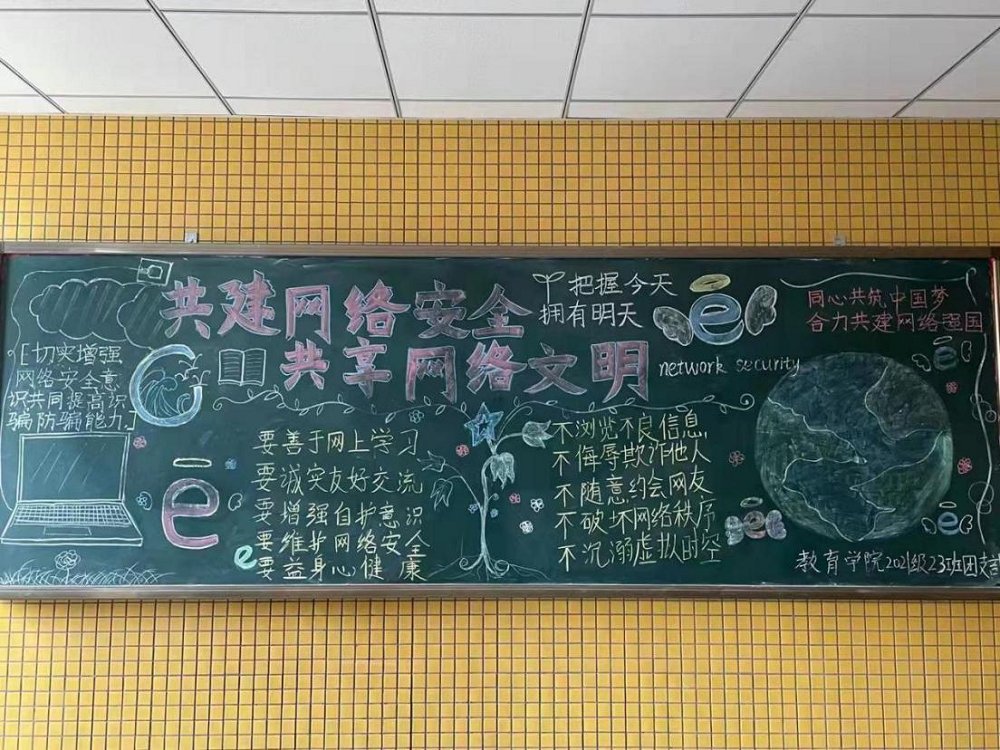 共建网络安全
共享网络文明
把握今天
拥有明天
network security
同心共筑中国梦
合力共建网络强国
[切实增强
网络安全意
识共同提高识
骗防骗能力.]
要善于网上学习
要诚实友好交流
要增强自护意识
要维护网络安全
要益身心健康
不浏览不良信息
不侮辱欺诈他人
不随意约会网友
不破坏网络秩序
不沉溺虚拟时空
教育学院2021级23班团支
e
e
e
e
e